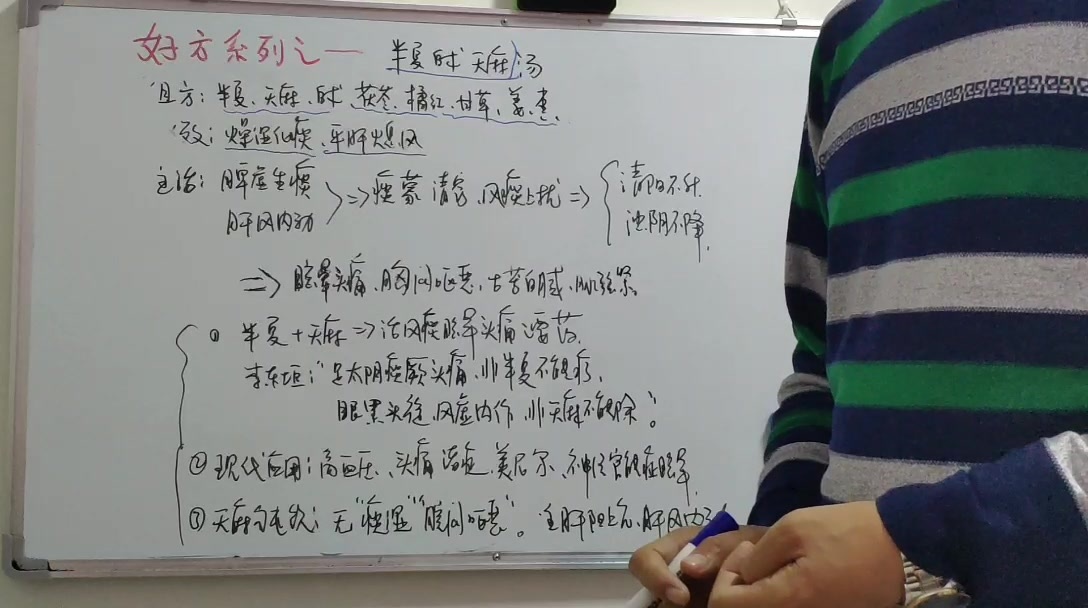 好方系列之一 半夏白术天麻汤
组方：半夏、天麻、白术、茯苓、橘红、甘草、姜、枣.
效：燥湿化痰、平肝熄风
主治：脾虚生痰
肝风内动
=>痰蒙清窍、风痰上扰=>
清阳不升
浊阴不降.
=>眩晕头痛、胸闷呕恶、舌苔白腻、脉弦
① 半夏+天麻=>治风痰眩晕头痛要药.
李东垣："足太阴痰厥头痛，非半夏不能疗，
眼黑头旋，风虚内作，非天麻不能除"。
② 现代应用：高血压、头痛诸症、美尼尔、神经官能症眩晕
③ 天麻钩藤饮：无"痰湿""胸闷呕恶"。主肝阳上亢、肝风内